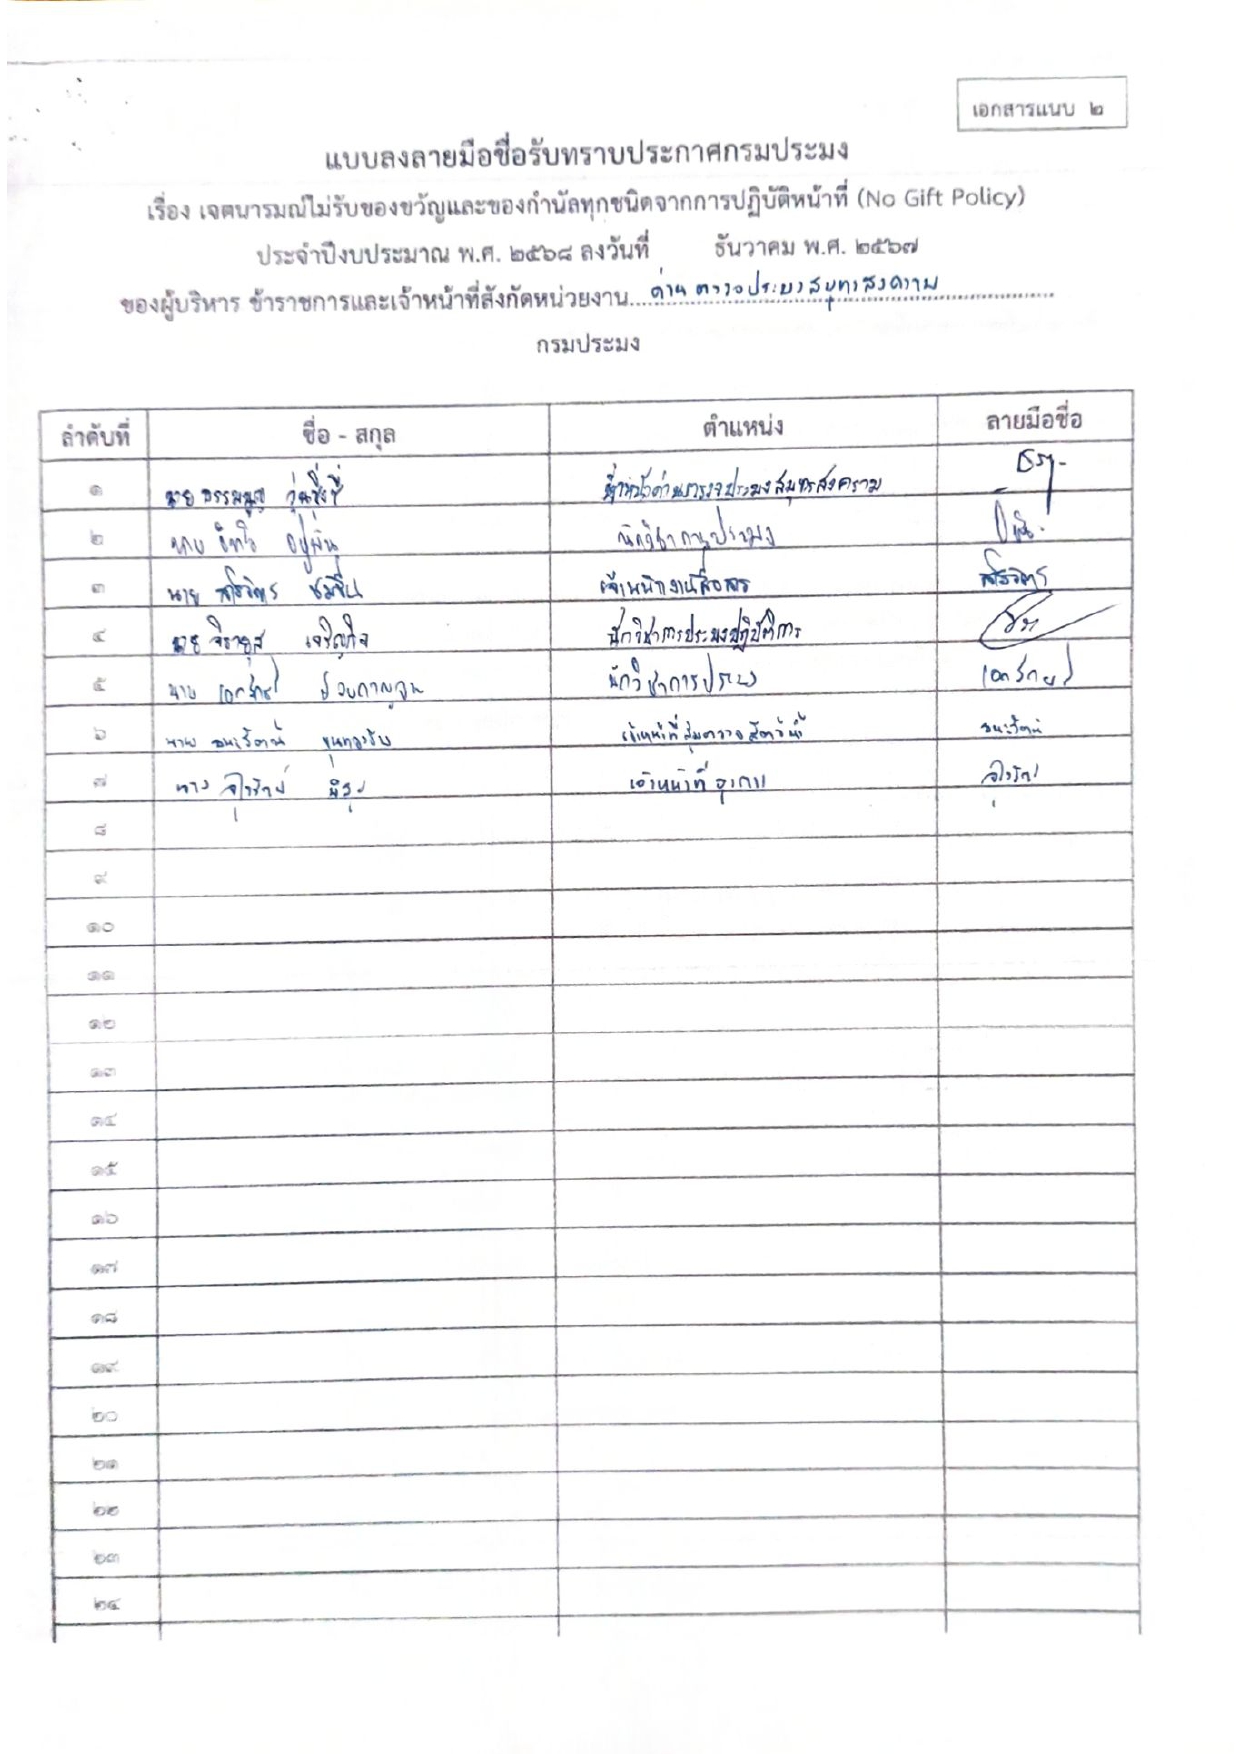 เอกสารแนบ ๒
แบบลงลายมือชื่อรับทราบประกาศกรมประมง
เรื่อง เจตนารมณ์ไม่รับของขวัญและของกำนัลทุกชนิดจากการปฏิบัติหน้าที่ (No Gift Policy)
ประจำปีงบประมาณ พ.ศ. ๒๕๖๘ ลงวันที่ ธันวาคม พ.ศ. ๒๕๖๗
ของผู้บริหาร ข้าราชการและเจ้าหน้าที่สังกัดหน่วยงาน ด่านตรวจประมงสมุทรสงคราม
กรมประมง
ลำดับที่ ชื่อ - สกุล ตำแหน่ง ลายมือชื่อ
๑ นาย ธรรมนูญ หัวหน้าด่านตรวจประมงสมุทรสงคราม
๒ นาย นักวิชาการประมง
๓ นาย ชมชื่น เจ้าพนักงานสื่อสาร
๔ นาย จิรายุส เจริญกิจ นักวิชาการประมงปฏิบัติการ
๕ นาย เอกรักษ์ นักวิชาการประมง เอกรักษ์
๖ นาย ธนะรัตน์ เจ้าหน้าที่สุ่มตรวจสัตว์น้ำ ธนะรัตน์
๗ นาง จุไรรัตน์ เจ้าหน้าที่ธุรการ จุไรรัตน์
๘
๙
๑๐
๑๑
๑๒
๑๓
๑๔
๑๕
๑๖
๑๗
๑๘
๑๙
๒๐
๒๑
๒๒
๒๓
๒๔